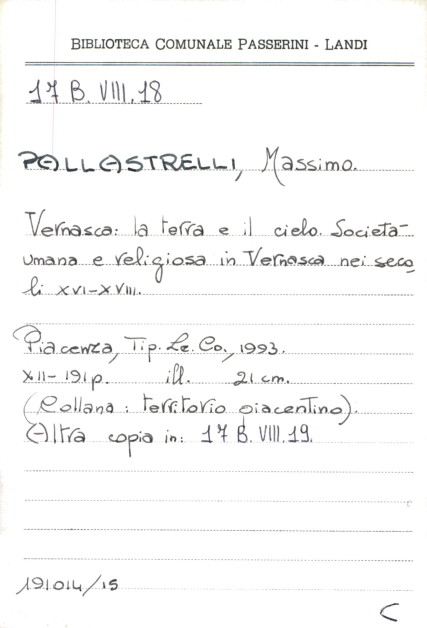 BIBLIOTECA COMUNALE PASSERINI - LANDI
17 B. VIII. 18
PALLASTRELLI, Massimo.
Vernasca: la terra e il cielo. Società
umana e religiosa in Vernasca nei seco
li XVI-XVIII.
Piacenza, Tip. Le. Co., 1993.
XII-191 p. ill. 21 cm.
(Collana: territorio piacentino).
(Altra copia in: 17 B. VIII. 19.
191014/15
C